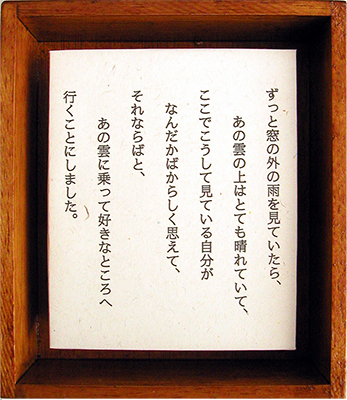 ずっと窓の外の雨を見ていたら、
あの雲の上はとても晴れていて、
ここでこうして見ている自分が
なんだかばからしく思えて、
それならばと、
あの雲に乗って好きなところへ
行くことにしました。